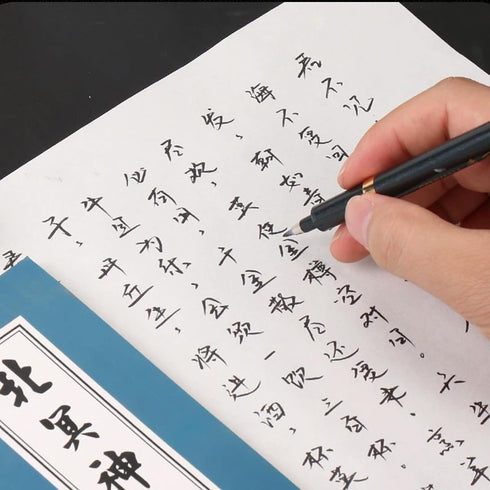 君不见
海不复回
发，朝如青
尽欢，莫使金樽空对月。天生
必有用，千金散尽还复来。烹羊
牛且为乐，会须一饮三百杯。
子，丹丘生，将进酒，杯莫
北冥神